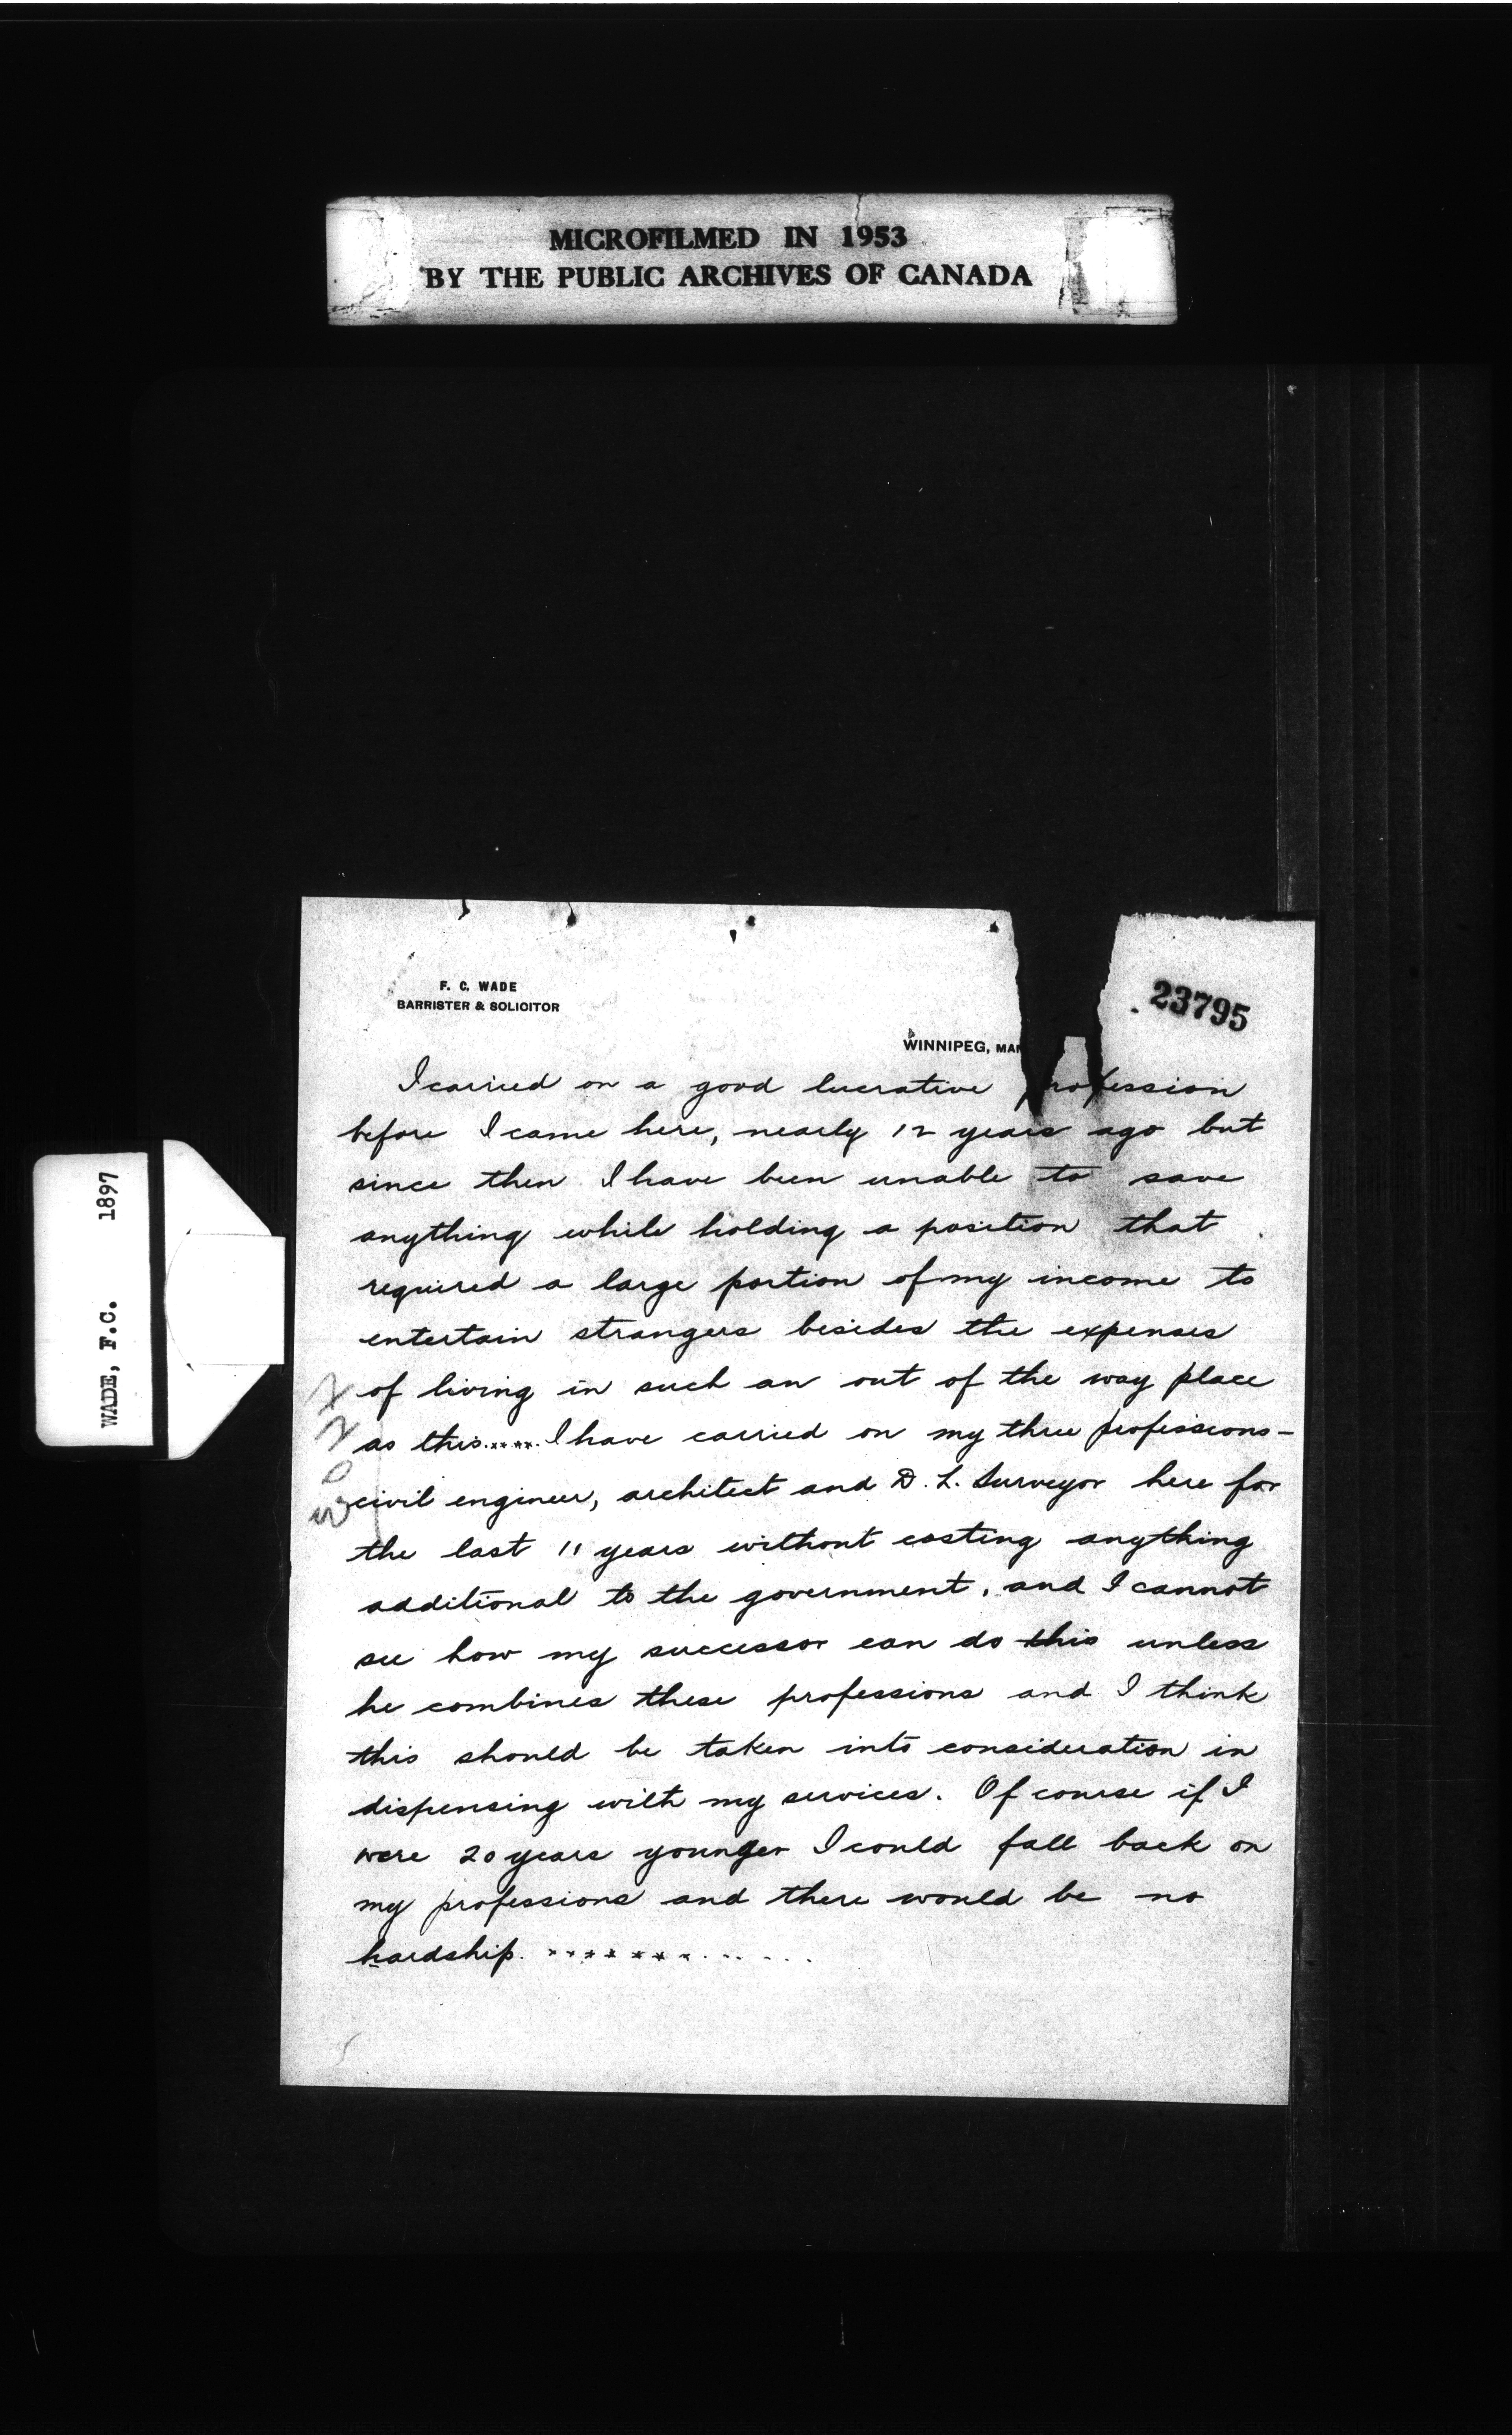 MICROFILMED IN 1953
BY THE PUBLIC ARCHIVES OF CANADA
WADE, F.C. 1897
F. C. WADE
BARRISTER & SOLICITOR
23795
WINNIPEG, MAN
I carried on a good lucrative profession
before I came here, nearly 12 years ago but
since then I have been unable to save
anything while holding a position that
required a large portion of my income to
entertain strangers besides the expenses
of living in such an out of the way place
as this..... I have carried on my three professions-
civil engineer, architect and D. L. Surveyor here for
the last 11 years without costing anything
additional to the government, and I cannot
see how my successor can do this unless
he combines these professions and I think
this should be taken into consideration in
dispensing with my services. Of course if I
were 20 years younger I could fall back on
my professions and there would be no
hardship. ............